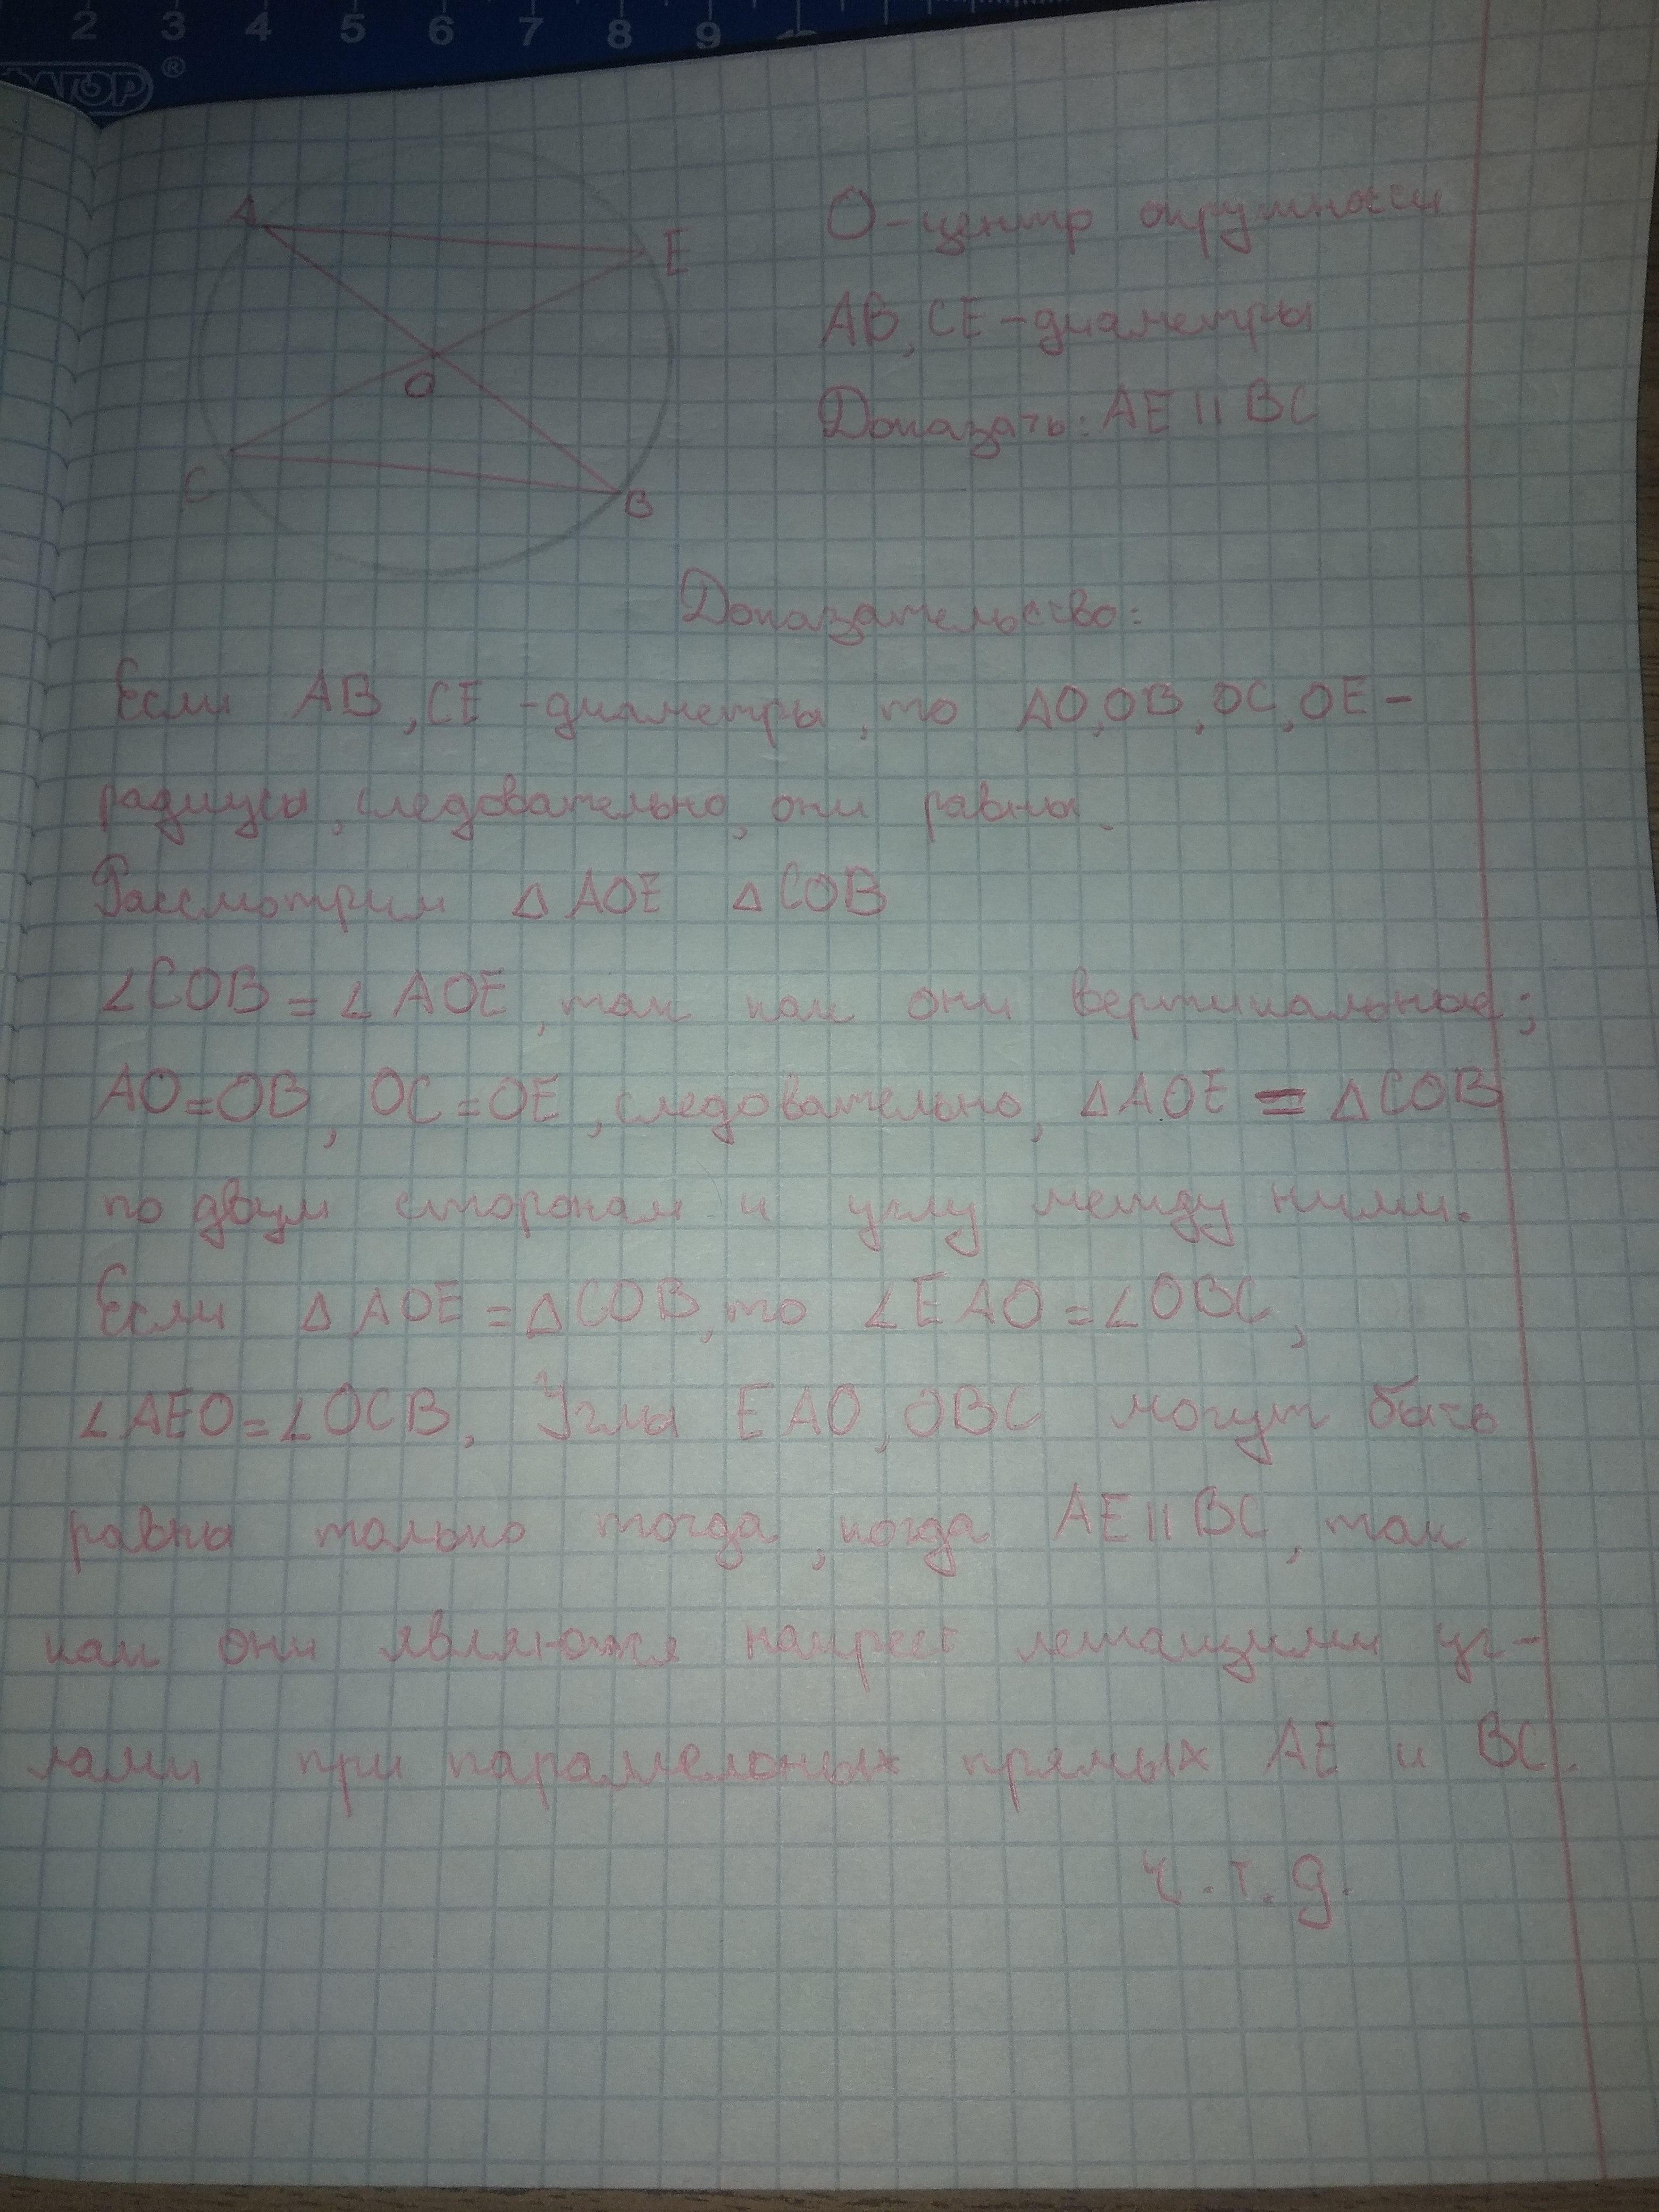 2 3 4 5 6 7 8 9 10
®
A
E
O
C
B
О-центр окружности
AB, CE - диаметры
Доказать: AE || BC
Доказательство:
Если AB, CE - диаметры, то AO, OB, OC, OE -
радиусы, следовательно, они равны.
Рассмотрим △ AOE △ COB
∠COB = ∠AOE, так как они вертикальные;
AO=OB, OC=OE, следовательно, △AOE = △COB
по двум сторонам и углу между ними.
Если △ AOE = △COB, то ∠EAO = ∠OBC,
∠AEO=∠OCB. Углы EAO, OBC могут быть
равны только тогда, когда AE || BC, так
как они являются накрест лежащими уг-
лами при параллельных прямых AE и BC.
ч.т.д.